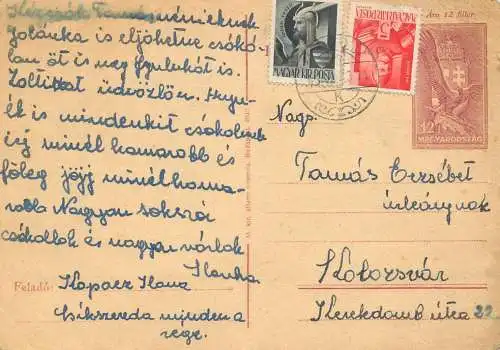 Tamás néniéknek
Jolánka is eljöhetne csóko-
lom őt is meg Gyulukát is.
Zolтikat üdvözlöm. Anyu-
ék is mindenkit csókolnak
írj minél hamarabb és
főleg jöjj minél hama-
rabb Nagyon sokszor
csókollak és nagyon várlak
Ilonka.
Feladó: Kopacz Ilona
Csíkszereda minden a
rége.
MAGYAR KIR. POSTA
MAGYAR KIR. POSTA
5
Ára 12 fillér
12
MAGYARORSZÁG
Nags.
Tamás Erzsébet
úrleánynak
Kolozsvár
Kerekdomb útca 22